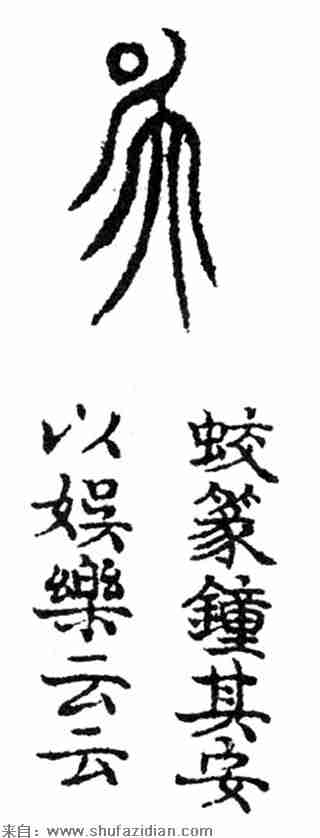 蛟篆鐘其安
以娯樂云云
来自：www.shufazidian.com